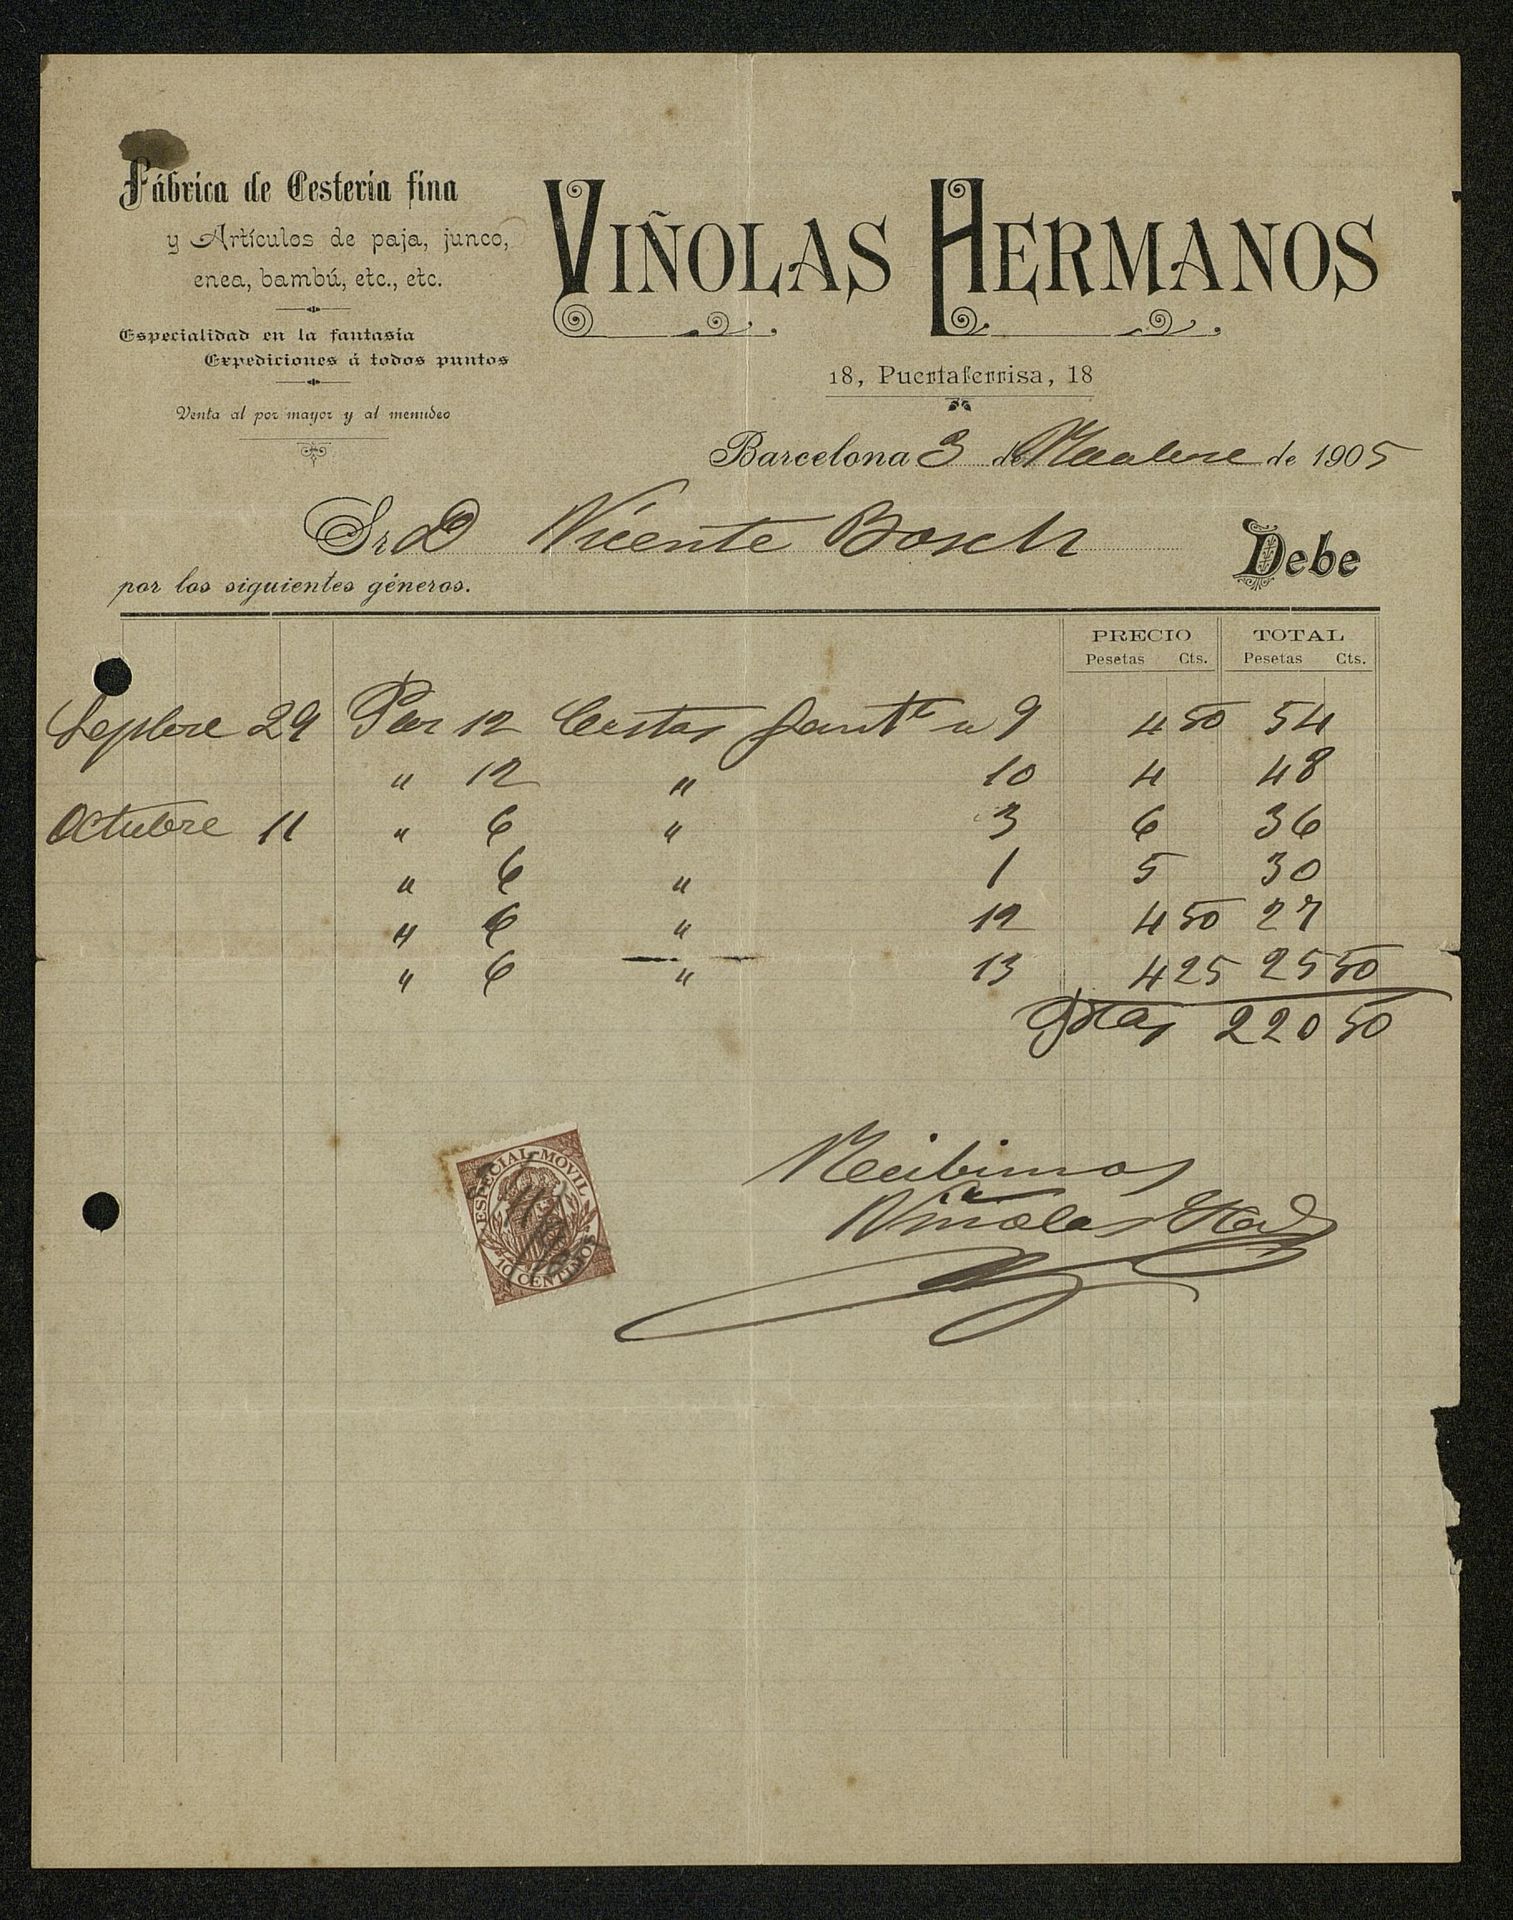 Fábrica de Cestería fina
y Artículos de paja, junco,
enea, bambú, etc., etc.
Especialidad en la fantasía
Expediciones á todos puntos
Venta al por mayor y al menudeo
VIÑOLAS HERMANOS
18, Puertaferrisa, 18
Barcelona 3 de Novbre de 1905
Sr. D Vicente Bosch Debe
por los siguientes géneros.
PRECIO TOTAL
Pesetas Cts. Pesetas Cts.
Sepbre 29 Por 12 Cestas fantª n 9 4 50 54
" 12 " 10 4 48
Octubre 11 " 6 " 3 6 36
" 6 " 1 5 30
" 6 " 12 4 50 27
" 6 " 13 4 25 25 50
Ptas 220 50
Recibimos
Viñolas Hos
ESPECIAL MOVIL
10 CENTIMOS